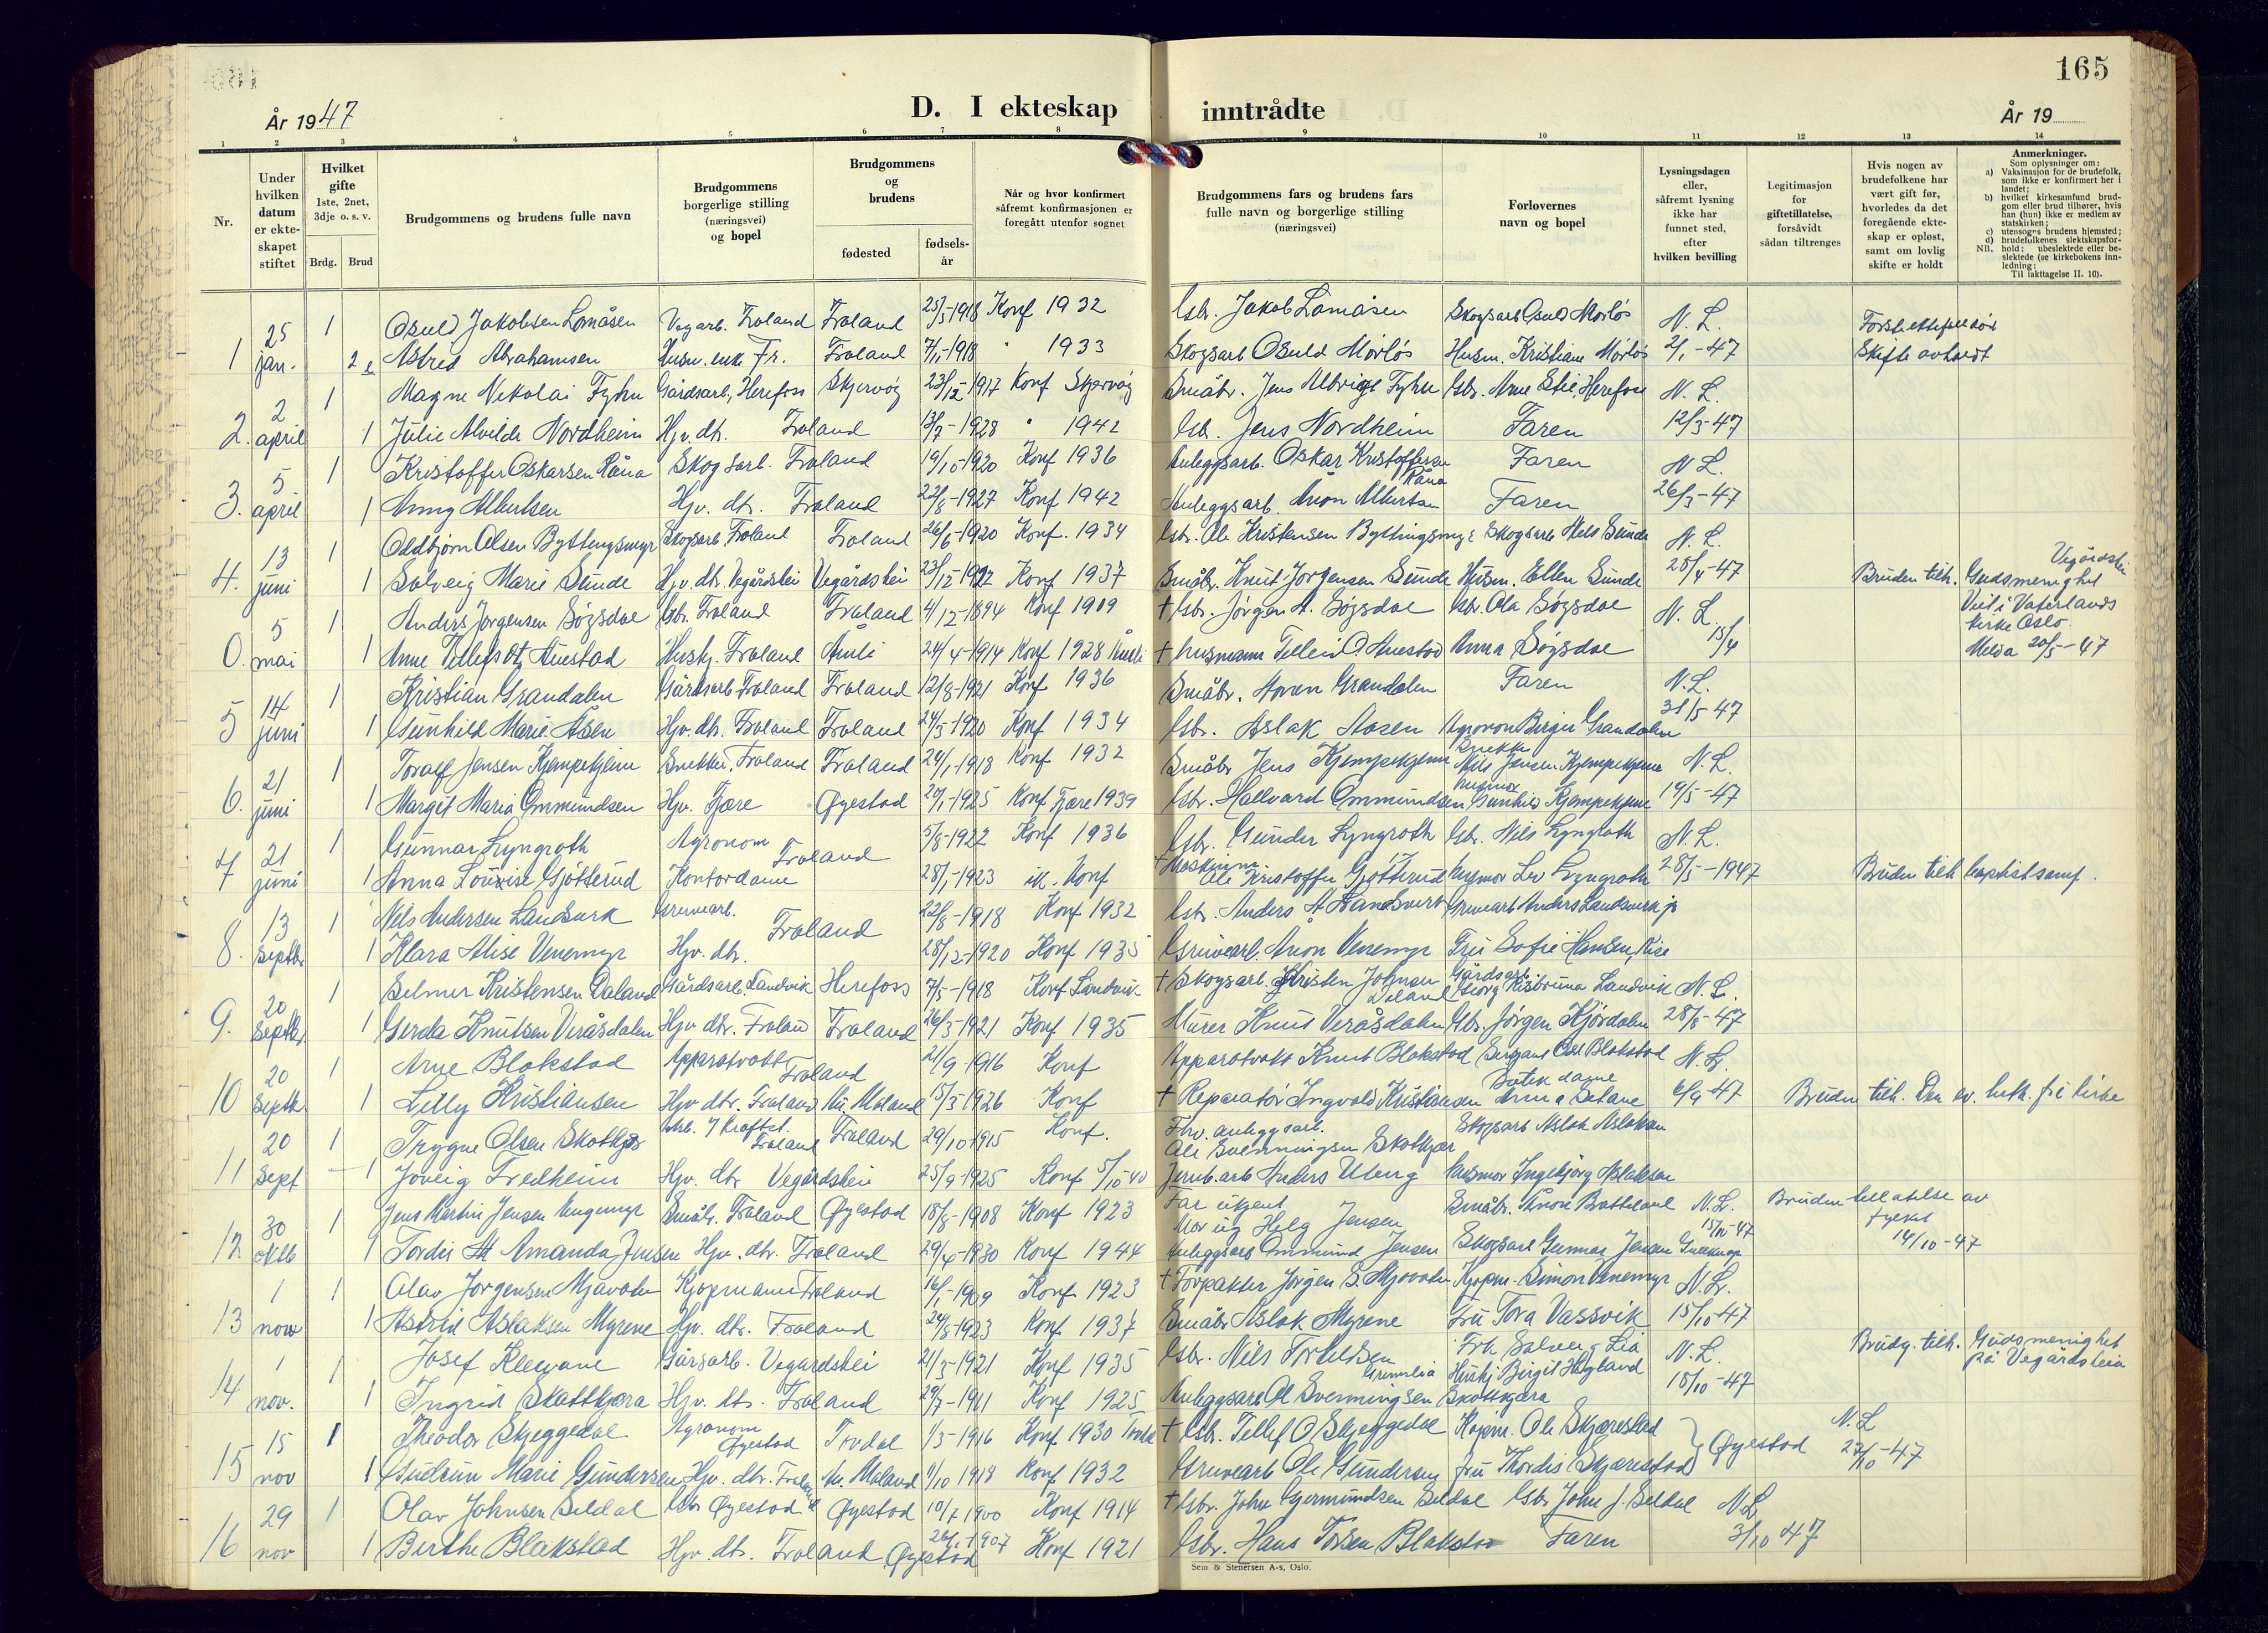 165
År 1947
D. I ekteskap inntrådte
År 19
1 2 3 4 5 6 7 8 9 10 11 12 13 14
Nr.
Under hvilken datum er ekte-skapet stiftet
Hvilket gifte 1ste, 2net, 3dje o. s. v.
Brdg. Brud
Brudgommens og brudens fulle navn
Brudgommens borgerlige stilling (næringsvei) og bopel
Brudgommens og brudens
fødested
fødsels-år
Når og hvor konfirmert såfremt konfirmasjonen er foregått utenfor sognet
Brudgommens fars og brudens fars fulle navn og borgerlige stilling (næringsvei)
Forlovernes navn og bopel
Lysningsdagen eller, såfremt lysning ikke har funnet sted, efter hvilken bevilling
Legitimasjon for giftetillatelse, forsåvidt sådan tiltrenges
Hvis nogen av brudefolkene har vært gift før, hvorledes da det foregående ekte-skap er opløst, samt om lovlig skifte er holdt
Anmerkninger.
Som oplysninger om:
a) Vaksinasjon for de brudefolk, som ikke er konfirmert her i landet;
b) hvilket kirkesamfund brud-gom eller brud tilhører, hvis han (hun) ikke er medlem av statskirken;
c) utensogns brudens hjemsted;
d) brudefolkenes slektskapsfor-hold; ubeslektede eller be-slektede (se kirkebokens inn-ledning;
NB. Til iakttagelse II. 10).
25 1 Osuld Jakobsen Lomåsen Vegarb. Froland Froland 25/5-1918 Konf 1932 Gbr. Jakob Lomåsen Skogsarb Osuld Mørløs N. L.
1 jan. 2 Astred Abrahamsen Husm. enk Fr. Froland 1918 " 1933 Skogsarb Osuld Mørløs Husm. Kristiane Mørløs 2/1-47 Skifte avholdt
2 1 Magne Nikolai Fyhn Gårdsarb, Herefoss Skjervøy 23/12-1917 Konf Skjervøy Småbr. Jens Fyhn Gbr. Arne Stie, Herefoss N. L.
2. april 1 Julie Alvilde Nordheim Hjv. dtr. Froland 13/7-1928 " 1942 Gbr. Jens Nordheim Faren 12/3-47
5 1 Kristoffer Oskarsen Råna Skogsarb. Froland 19/10-1920 Konf 1936 Anleggsarb. Oskar Kristoffersen Råna Faren N L.
3. april 1 Anny Albertsen Hjv. dtr. Froland 22/8-1927 Konf 1942 Anleggsarb. Aron Albertsen Faren 26/3-47
13 1 Oddbjørn Olsen Byttingsmyr Skogsarb Froland Froland 26/6-1920 Konf. 1934 Gbr. Ole Kristensen Byttingsmyr Skogsarb Nels Sunde N. L.
4. juni 1 Solveig Marie Sunde Hjv. dtr. Vegårdshei Vegårdshei 23/12-1922 Konf 1937 Småbr. Knut Jørgensen Sunde Husm. Ellen Sunde 28/4-47 Bruden tilh. Gudsmenighet Vegårdshei
5 1 Anders Jørgensen Søgsdal Gbr. Froland Froland 4/12-1894 Konf 1909 + Gbr. Jørgen A. Søgsdal Gbr. Ola Søgsdal N. L. Viet i Vaterlands kirke Oslo.
0. mai 1 Anne Åmli 24/4-1914 Konf 1928 Åmli Anna Søgsdal 15/4 20/5-47
14 1 Kristian Grandalen Gårdsarb Froland Froland 12/8-1921 Konf 1936 Småbr. Grandalen Faren N.L.
5 juni 1 Gunhild Marie Åsen Hjv. dtr. Froland Froland 24/3-1920 Konf 1934 Gbr. Aslak Aasen Agronom Birger Grandalen 31/5-47
21 1 Toralf Jensen Kjempekjenn Snekker. Froland Froland 24/1-1918 Konf 1932 Småbr Jens Kjempekjenn Snekker Nils Jensen Kjempekjenn N. L.
6. juni 1 Margit Maria Ommundsen Hjv. Fjære Øyestad 1925 Konf Fjære 1939 Gbr. Hallvard Ommundsen husmor Gunhild Kjempekjenn 19/5-47
21 1 Gunnar Lyngroth Agronom Froland 5/8-1922 Konf 1936 Gbr. Gunder Lyngroth Gbr. Nils Lyngroth N. L.
7 juni 1 Anna Louise Gjötterud Kontordame 28/1-1923 ik. Konf + Ole Kristoffer Gjötterud husmor Lyngroth 28/5-1947 Bruden tilh baptistsamf.
13 1 Nils Andersen Landsverk Gruvearb. Froland 22/8-1918 Konf 1932 Gbr. Anders A Landsverk Gruvearb Anders Landsverk jr
8. septbr 1 Klara Alise Venemyr Hjv. dtr. 28/12-1920 Konf 1935 Gruvearb. Aron Venemyr Fru Sofie Hansen, Rise
20 1 Selmer Kristensen Daland Gårdsarb. Landvik Herefoss 7/5-1918 Konf Landvik + Skogsarb. Kristen Johnsen Daland Gårdsarb Georg Landvik N. L.
9. septbr. 1 Gerda Knutsen Veråsdalen Hjv dtr. Froland Froland 26/3-1921 Konf 1935 Murer Knut Veråsdalen Gbr. Jörgen Hjördalen 28/8-47
20 1 Arne Blakstad Apparatvakt Froland 21/9-1916 Konf Apparatvakt Knut Blakstad Blakstad N. L.
10 septb. 1 Lilly Kristiansen Hjv dtr. Froland Au. Moland 15/3-1926 Konf + Reparatör Ingvald Kristiansen Butikdame 6/9-47 Bruden tilh. Den ev. luth. fri kirke
20 1 Trygve Olsen Skotkjær Froland Froland 29/10 1915 Konf. Fhv. anleggsarb. Ole Svenningsen Skotkjær Skogsarb Aslak Aslaksen
11 sept 1 Fredheim Hjv. dtr Vegårdshei 25/9-1925 Konf 5/10-40 Jernb.arb Anders Ubeng husmor Ingebjørg Aslaksen
30 1 Jens Martin Jensen Småbr. Froland Øyestad 18/8-1908 Konf 1923 Far ukjent Mor ug Helg Jensen Småbr. N. L. 15/10-47 Bruden tillatelse av fylket 14/10-47
12 oktb 1 Tordis Amanda Jensen Hjv. dtr. Froland 29/4-1930 Konf 1944 Anleggsarb Ommund Jensen Skogsarb Gunnar Jensen
1 1 Olav Jørgensen Mjåvatn Kjøpmann Froland 16/1-1909 Konf 1923 + Forpakter Jørgen S. Mjåvatn Kjøpm. Simon Venemyr N. L.
13 nov 1 Astrid Aslaksen Myrene Hjv. dtr. Froland 24/8-1923 Konf 1937 Småbr Aslak Myrene Fru Tora Vassvik 15/10-47
1 1 Josef Kleivane Gårsarb. Vegårdshei 21/3-1921 Konf 1935 Gbr. Nils Torkildsen Grimelia Frk Solveig Lia N. L. Brudg. tilh. Gudsmenighet på Vegårdsheia
14 nov. 1 Ingrid Skottkjæra Hjv. dtr. Froland 29/7-1911 Konf 1925 Anleggsarb Ol Svenningsen Skottkjæra Hushj Birgit Høgland 18/10-47
15 1 Theodor Skjeggedal Agronom Øyestad Tovdal 1/3-1916 Konf 1930 Tovdal + Gbr. Tellef O Skjeggedal Kjøpm. Ole Skjærestad Øyestad N. L
15 nov 1 Gudrun Marie Gundersen Hjv. dtr. Froland Au. Moland 1/10 1918 Konf 1932 Gruvearb Ole Gundersen fru Thordis Skjærestad 23/10-47
29 1 Olav Johnsen Seldal Gbr Øyestad Øyestad 10/7 1900 Konf 1914 + Gbr. John Gjermundsen Seldal Gbr John J. Seldal N. L
16 nov 1 Birthe Blakstad Hjv. dtr. Froland Øyestad 1907 Konf 1921 Gbr. Hans Torsen Blakstad Faren 3/10 47
Sem & Stenersen A-s, Oslo.